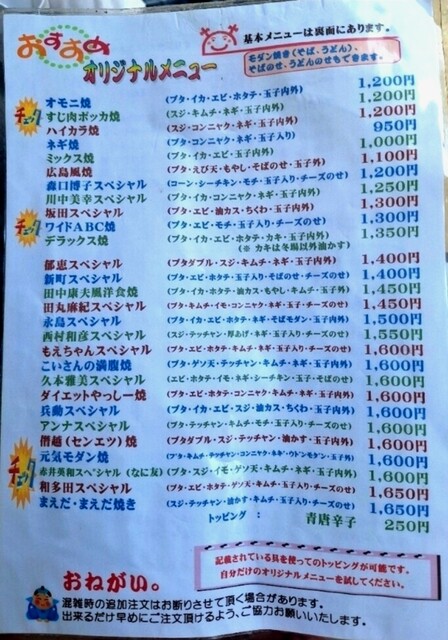 おすすめ
オリジナルメニュー
基本メニューは裏面にあります。
モダン焼き(そば、うどん)、
そばのせ、うどんのせもできます。
オモニ焼 (ブタ・イカ・エビ・ホタテ・玉子内外) 1,200円
チェック すじ肉ポッカ焼 (スジ・キムチ・ネギ・玉子内外) 1,200円
ハイカラ焼 (スジ・コンニャク・ネギ・玉子外) 950円
ネギ焼 (ブタ・コンニャク・ネギ・玉子入り) 1,000円
ミックス焼 (ブタ・イカ・エビ・玉子外) 1,100円
広島風焼 (ブタ・えび天・もやし・そばのせ・玉子外) 1,200円
森口博子スペシャル (コーン・シーチキン・モチ・玉子入り・チーズのせ) 1,250円
川中美幸スペシャル (ブタ・イカ・コンニャク・ネギ・玉子外) 1,300円
坂田スペシャル (ブタ・エビ・油カス・ちくわ・玉子外) 1,300円
チェック ワイドABC焼 (ブタ・エビ・モチ・玉子入り・チーズのせ) 1,350円
デラックス焼 (ブタ・イカ・エビ・ホタテ・カキ・玉子内外)
(※カキは冬場以外油かす)
郁恵スペシャル (ブタダブル・スジ・キムチ・ネギ・玉子内外) 1,400円
新町スペシャル (ブタ・エビ・ホタテ・玉子入り・そばのせ・チーズのせ) 1,400円
田中康夫風洋食焼 (ブタ・イカ・ホタテ・油カス・もやし・キムチ・玉子外) 1,450円
田丸麻紀スペシャル (ブタ・キムチ・イモ・コンニャク・ネギ・玉子・チーズのせ) 1,450円
永島スペシャル (ブタ・イカ・エビ・ホタテ・ネギ・そばモダン・玉子内外) 1,500円
西村和彦スペシャル (スジ・テッチャン・厚あげ・ネギ・玉子入り・チーズのせ) 1,550円
もえちゃんスペシャル (ブタ・エビ・ホタテ・キムチ・ネギ・玉子内外) 1,600円
こいさんの満腹焼 (ブタ・ゲソ天・テッチャン・キムチ・ネギ・玉子外) 1,600円
久本雅美スペシャル (エビ・ホタテ・イモ・ネギ・シーチキン・玉子・そばのせ) 1,600円
ダイエットやっしー焼 (ブタ・エビ・ホタテ・コンニャク・キムチ・ネギ・玉子外) 1,600円
兵動スペシャル (ブタ・イカ・エビ・スジ・油カス・ちくわ・玉子内外) 1,600円
アンナスペシャル (ブタ・テッチャン・キムチ・モチ・玉子入り・チーズのせ) 1,600円
僭越(センエツ)焼 (ブタダブル・スジ・テッチャン・油かす・玉子内外) 1,600円
チェック 元気モダン焼 (ブタ・キムチ・テッチャン・コンニャク・ネギ・ウドンモダン・玉子外) 1,600円
赤井英和スペシャル(なに友) (ブタ・スジ・イモ・ゲソ天・キムチ・ネギ・玉子内外) 1,600円
和多田スペシャル (ブタ・エビ・ホタテ・ゲソ天・キムチ・ネギ・玉子外) 1,650円
まえだ・まえだ焼き (スジ・テッチャン・油かす・キムチ・玉子入り・チーズのせ) 1,650円
トッピング: 青唐辛子 250円
記載されている具を使ってのトッピングが可能です。
自分だけのオリジナルメニューを試してください。
おねがい。
混雑時の追加注文はお断りさせて頂く場合があります。
出来るだけ早めにご注文頂けるよう、ご協力お願いいたします。